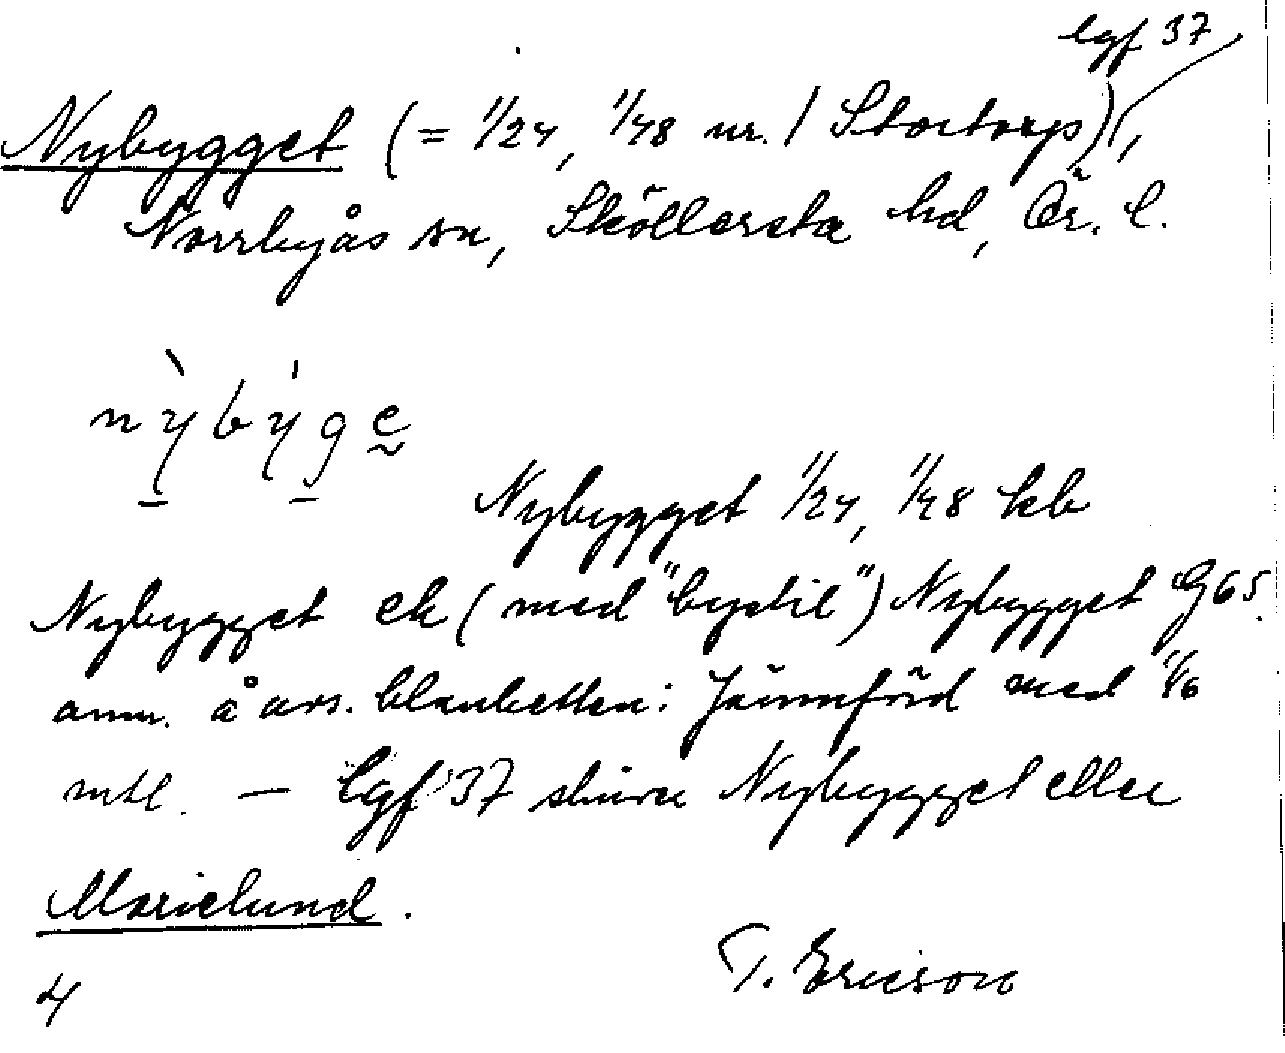 lgf 37
Nybygget (= 1/24, 1/48 nr. 1 Stortorp),
Norrbyås sn, Sköllersta hd, Ör. l.
nybyge
Nybygget 1/24, 1/48 kb
Nybygget ek (med "bystil") Nybygget G65.
anm. å avs. blanketten: Jämförd med 1/16
mtl. — Lgf 37 skiver Nybygget eller
Marielund.
T. Ericson
4